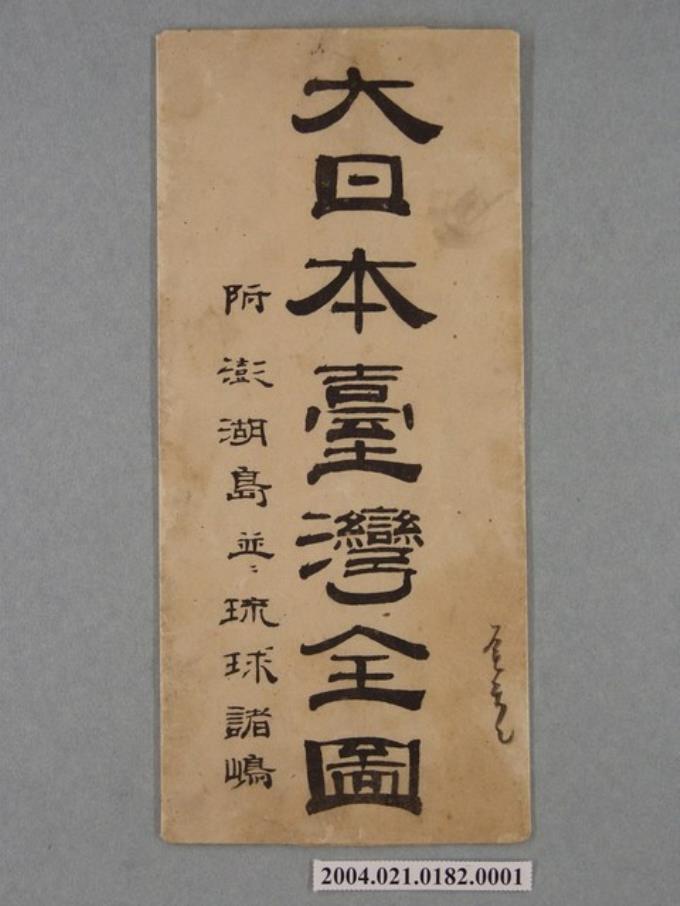 大日本臺灣全圖
附澎湖島並ニ琉球諸嶋
2004.021.0182.0001